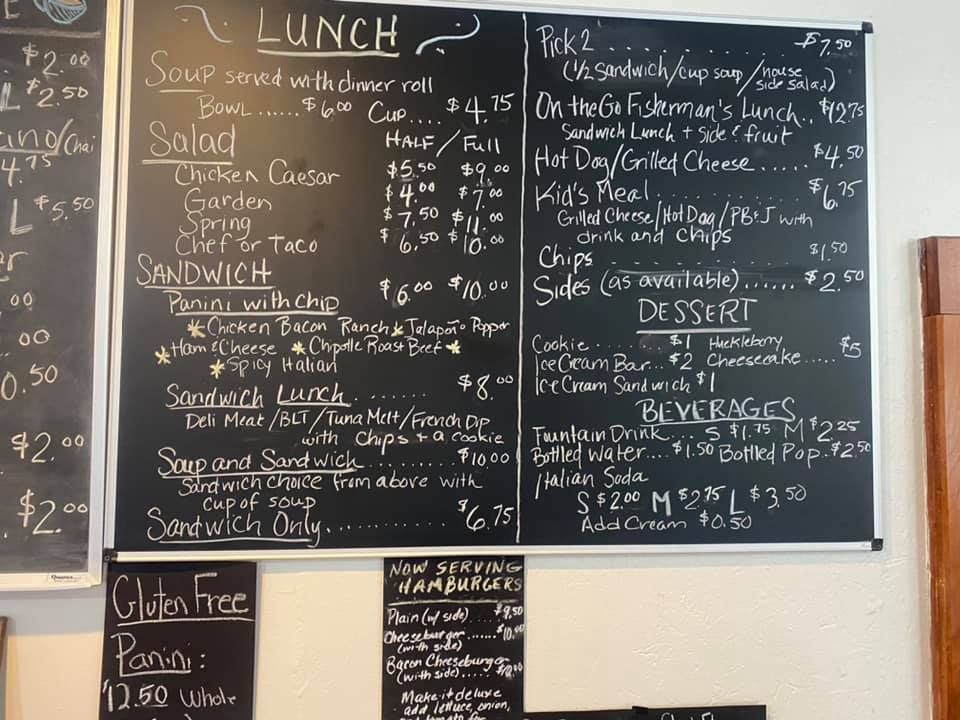 $2.00
L $2.50
ino/Chai
4.75
L $5.50
00
00
0.50
$2.00
$2.00
LUNCH
Soup served with dinner roll
Bowl...... $6.00 Cup.... $4.75
Salad HALF / Full
Chicken Caesar $5.50 $9.00
Garden $4.00 $7.00
Spring $7.50 $11.00
Chef or Taco $6.50 $10.00
SANDWICH
Panini with chip $6.00 $10.00
Chicken Bacon Ranch Jalapaño Popper
Ham & Cheese Chipotle Roast Beef
Spicy Italian
Sandwich Lunch ....... $8.00
Deli Meat/BLT/Tuna Melt/French Dip
with Chips + a cookie
Soup and Sandwich .......... $10.00
Sandwich choice from above with
cup of soup
Sandwich Only............ $6.75
Pick 2 ............ $7.50
(1/2 sandwich/cup soup/house
side salad)
On the Go Fisherman's Lunch.. $12.75
Sandwich Lunch + Side & fruit
Hot Dog/Grilled Cheese..... $4.50
Kid's Meal ............ $6.75
Grilled Cheese/Hot Dog/PB&J with
drink and chips
Chips .............. $1.50
Sides (as available)...... $2.50
DESSERT
Cookie........ $1 Huckleberry
Ice Cream Bar... $2 Cheesecake..... $5
Ice Cream Sandwich $1
BEVERAGES
Fountain Drink... S $1.75 M $2.25
Bottled Water.... $1.50 Bottled Pop.. $2.50
Italian Soda
S $2.00 M $2.75 L $3.50
Add Cream $0.50
Gluten Free
Panini:
$12.50 Whole
NOW SERVING
HAMBURGERS
Plain (w/ side) .... $9.50
Cheeseburger ...... $10.00
(with side)
Bacon Cheeseburger
(with side).....
Make it deluxe
add lettuce, onion,